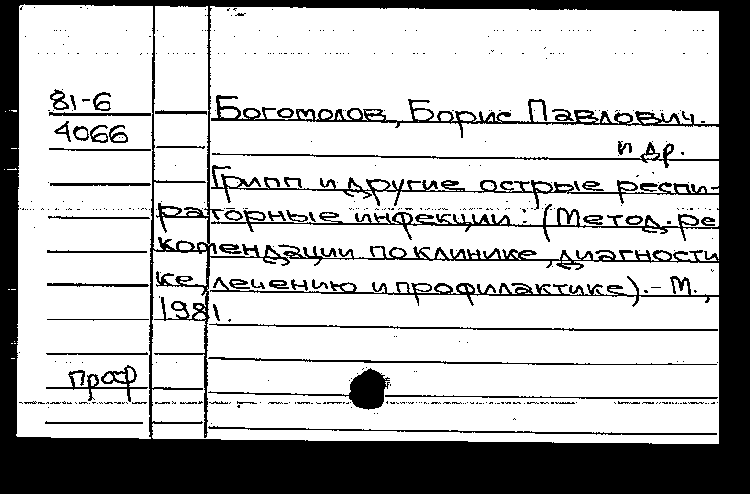 81-6
Богомолов, Борис Павлович.
4066
и др.
Грипп и другие острые респи-
раторные инфекции: (Метод. ре
комендации по клинике, диагности
ке, лечению и профилактике). - М.,
1981.
проф